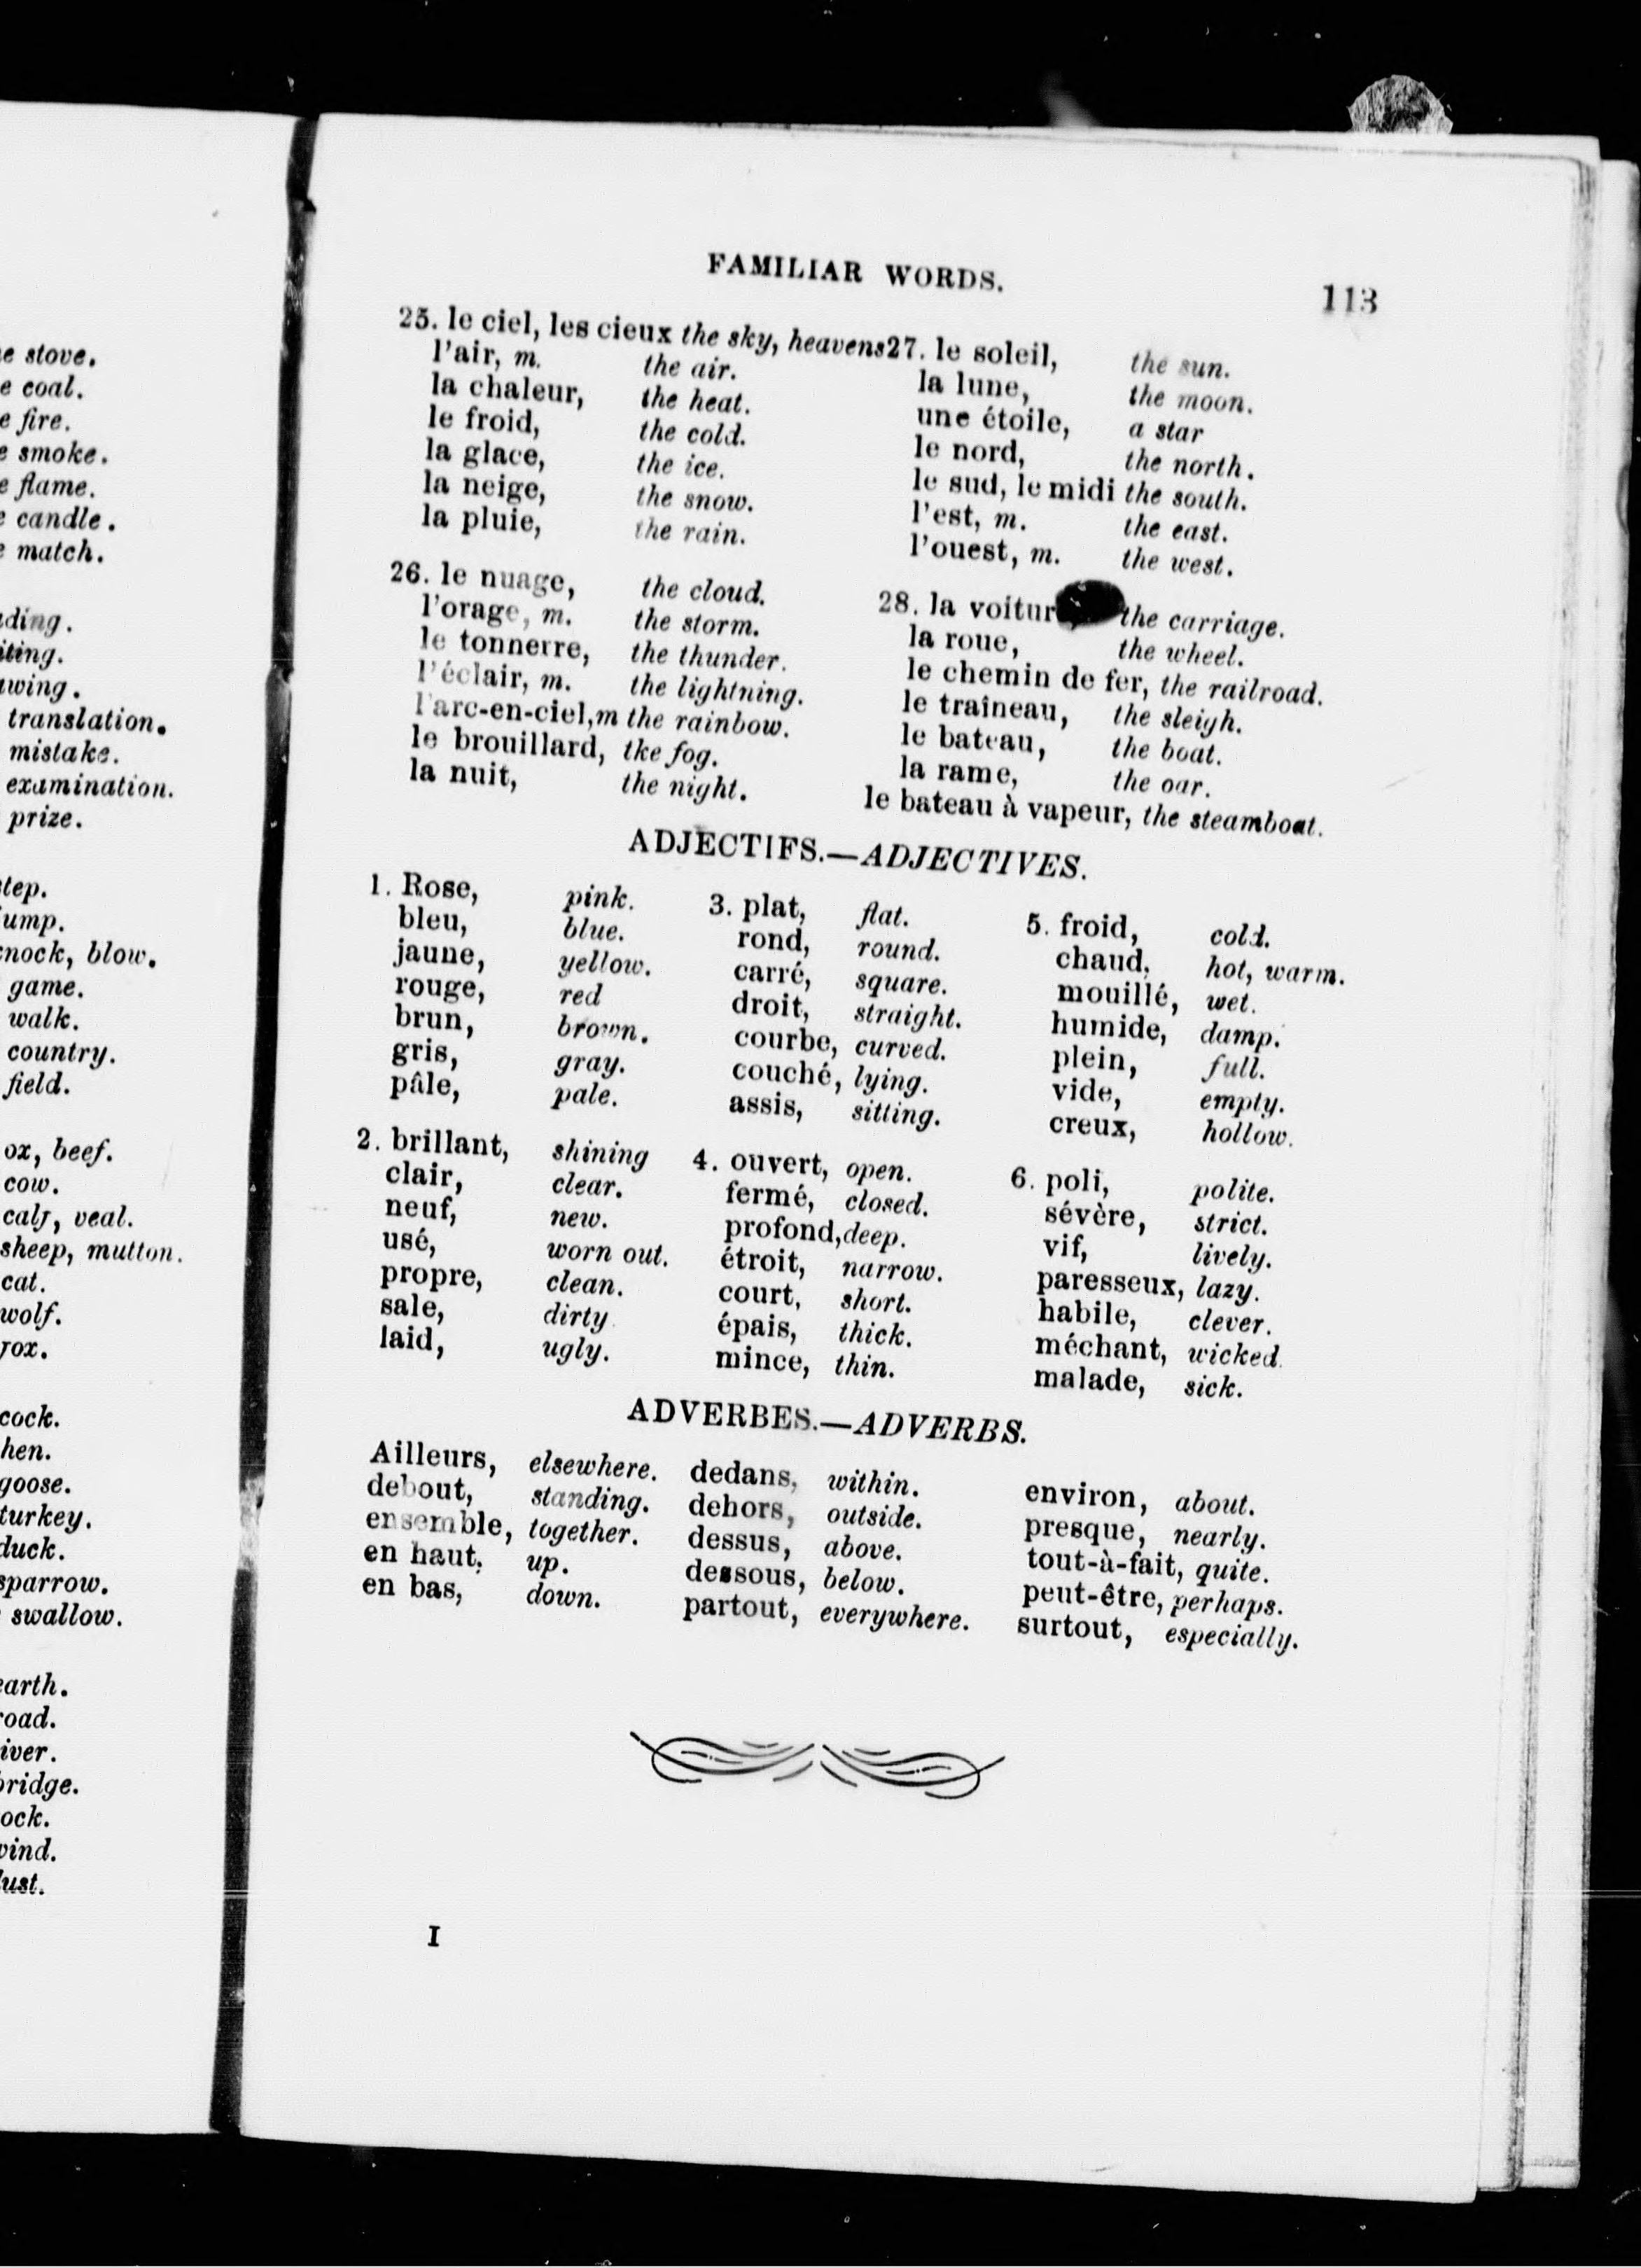 e stove.
e coal.
e fire.
e smoke.
e flame.
e candle.
e match.
ding.
iting.
wing.
translation.
mistake.
examination.
prize.
step.
ump.
nock, blow.
game.
walk.
country.
field.
ox, beef.
cow.
calf, veal.
sheep, mutton.
cat.
wolf.
fox.
cock.
hen.
goose.
turkey.
duck.
sparrow.
swallow.
earth.
road.
iver.
bridge.
ock.
wind.
dust.
FAMILIAR WORDS.
113
25. le ciel, les cieux the sky, heavens
l'air, m. the air.
la chaleur, the heat.
le froid, the cold.
la glace, the ice.
la neige, the snow.
la pluie, the rain.
26. le nuage, the cloud.
l'orage, m. the storm.
le tonnerre, the thunder.
l'éclair, m. the lightning.
l'arc-en-ciel,m the rainbow.
le brouillard, tke fog.
la nuit, the night.
27. le soleil, the sun.
la lune, the moon.
une étoile, a star
le nord, the north.
le sud, le midi the south.
l'est, m. the east.
l'ouest, m. the west.
28. la voitur the carriage.
la roue, the wheel.
le chemin de fer, the railroad.
le traîneau, the sleigh.
le bateau, the boat.
la rame, the oar.
le bateau à vapeur, the steamboat.
ADJECTIFS.—ADJECTIVES.
1. Rose, pink.
bleu, blue.
jaune, yellow.
rouge, red
brun, brown.
gris, gray.
pâle, pale.
2. brillant, shining
clair, clear.
neuf, new.
usé, worn out.
propre, clean.
sale, dirty
laid, ugly.
3. plat, flat.
rond, round.
carré, square.
droit, straight.
courbe, curved.
couché, lying.
assis, sitting.
4. ouvert, open.
fermé, closed.
profond,deep.
étroit, narrow.
court, short.
épais, thick.
mince, thin.
5. froid, cold.
chaud, hot, warm.
mouillé, wet.
humide, damp.
plein, full.
vide, empty.
creux, hollow.
6. poli, polite.
sévère, strict.
vif, lively.
paresseux, lazy.
habile, clever.
méchant, wicked.
malade, sick.
ADVERBES.—ADVERBS.
Ailleurs, elsewhere.
debout, standing.
ensemble, together.
en haut, up.
en bas, down.
dedans, within.
dehors, outside.
dessus, above.
dessous, below.
partout, everywhere.
environ, about.
presque, nearly.
tout-à-fait, quite.
peut-être, perhaps.
surtout, especially.
I